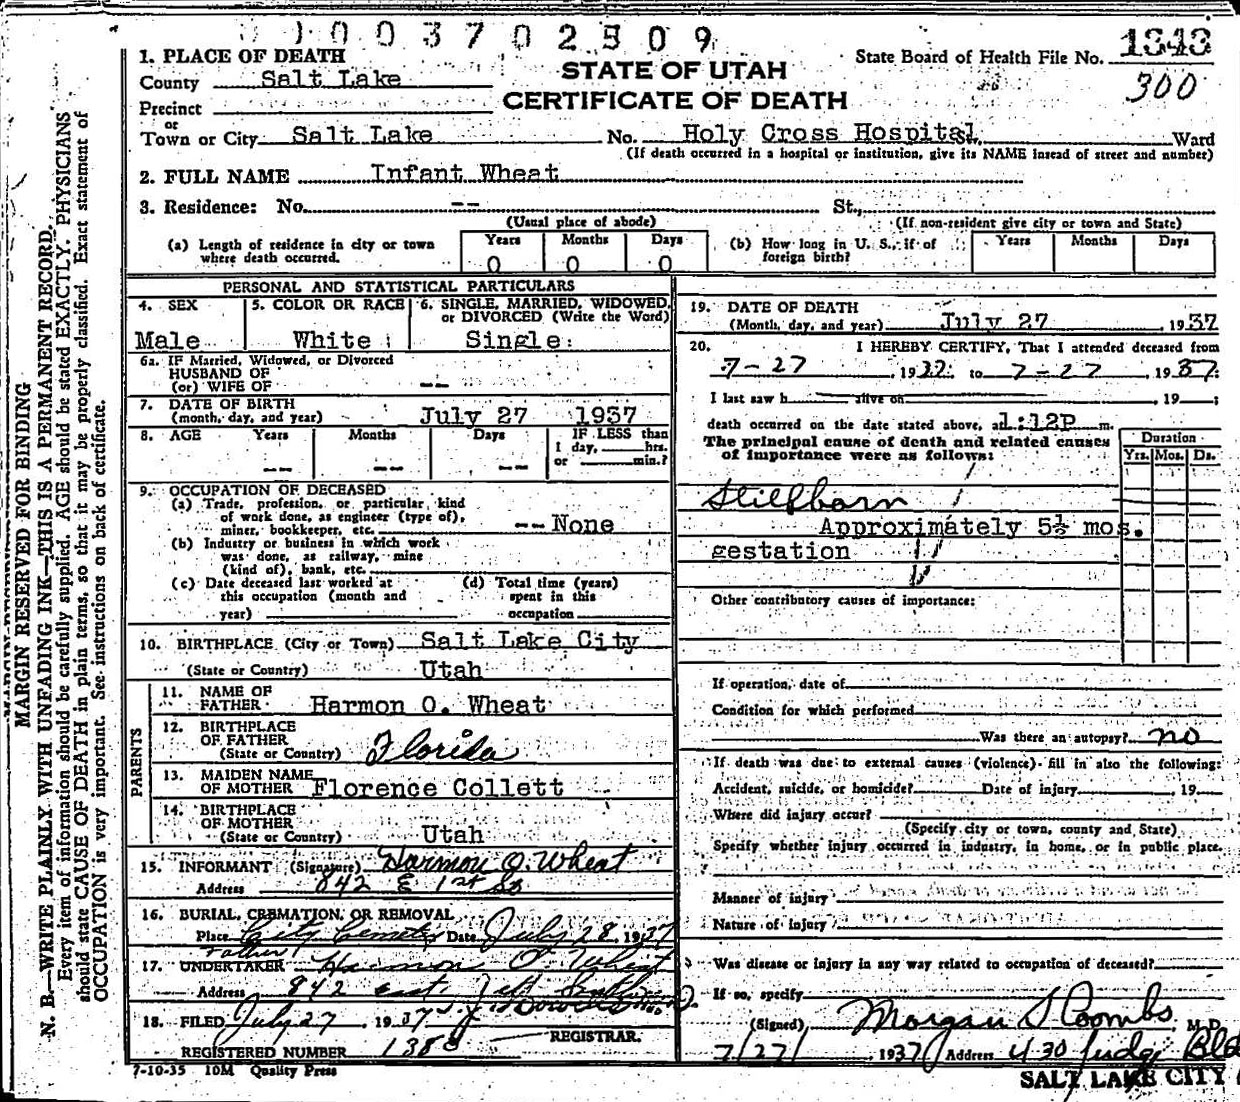 1003702309
1. PLACE OF DEATH
State Board of Health File No. 1343
County Salt Lake
STATE OF UTAH
300
Precinct
CERTIFICATE OF DEATH
or
Town or City Salt Lake No. Holy Cross Hospital St. Ward
(If death occurred in a hospital or institution, give its NAME instead of street and number)
2. FULL NAME Infant Wheat
3. Residence: No. -- St.,
(Usual place of abode) (If non-resident give city or town and State)
(a) Length of residence in city or town where death occurred. Years 0 Months 0 Days 0
(b) How long in U. S., if of foreign birth? Years Months Days
PERSONAL AND STATISTICAL PARTICULARS
4. SEX 5. COLOR OR RACE 6. SINGLE, MARRIED, WIDOWED, or DIVORCED (Write the Word)
Male White Single
6a. IF Married, Widowed, or Divorced
HUSBAND OF
(or) WIFE OF --
7. DATE OF BIRTH
(month, day, and year) July 27 1937
8. AGE Years Months Days IF LESS than
1 day, hrs.
-- -- -- or min.?
9. OCCUPATION OF DECEASED
(a) Trade, profession, or particular kind
of work done, as engineer (type of),
miner, bookkeeper, etc. -- None
(b) Industry or business in which work
was done, as railway, mine
(kind of), bank, etc.
(c) Date deceased last worked at (d) Total time (years)
this occupation (month and spent in this
year) occupation
10. BIRTHPLACE (City or Town) Salt Lake City
(State or Country) Utah
PARENTS
11. NAME OF
FATHER Harmon O. Wheat
12. BIRTHPLACE
OF FATHER
(State or Country) Florida
13. MAIDEN NAME
OF MOTHER Florence Collett
14. BIRTHPLACE
OF MOTHER
(State or Country) Utah
15. INFORMANT (Signature) Harmon O. Wheat
Address 842 E 1st So
16. BURIAL, CREMATION, OR REMOVAL
Place City Cemetry Date July 28 1937
Father
17. UNDERTAKER Harmon O. Wheat
Address 842 east
18. FILED July 27, 1937
REGISTRAR.
REGISTERED NUMBER 1388
7-10-35 10M Quality Press
19. DATE OF DEATH
(Month, day, and year) July 27, 1937
20. I HEREBY CERTIFY, That I attended deceased from
7-27, 1937 to 7-27, 1937
I last saw h alive on , 19 ;
death occurred on the date stated above, at 1:12P m.
The principal cause of death and related causes
of importance were as follows:
Duration
Yrs. Mos. Ds.
Stillborn
Approximately 5½ mos.
gestation
Other contributory causes of importance:
If operation, date of
Condition for which performed
Was there an autopsy? no
If death was due to external causes (violence) fill in also the following:
Accident, suicide, or homicide? Date of injury , 19
Where did injury occur?
(Specify city or town, county and State)
Specify whether injury occurred in industry, in home, or in public place.
Manner of injury
Nature of injury
Was disease or injury in any way related to occupation of deceased?
If so, specify
(Signed) Morgan S Coombs M. D.
7/27/ 1937 Address 430 Judge Bld
SALT LAKE CITY
MARGIN RESERVED FOR BINDING
N. B.—WRITE PLAINLY WITH UNFADING INK—THIS IS A PERMANENT RECORD.
Every item of information should be carefully supplied. AGE should be stated EXACTLY. PHYSICIANS
should state CAUSE OF DEATH in plain terms, so that it may be properly classified. Exact statement of
OCCUPATION is very important. See instructions on back of certificate.